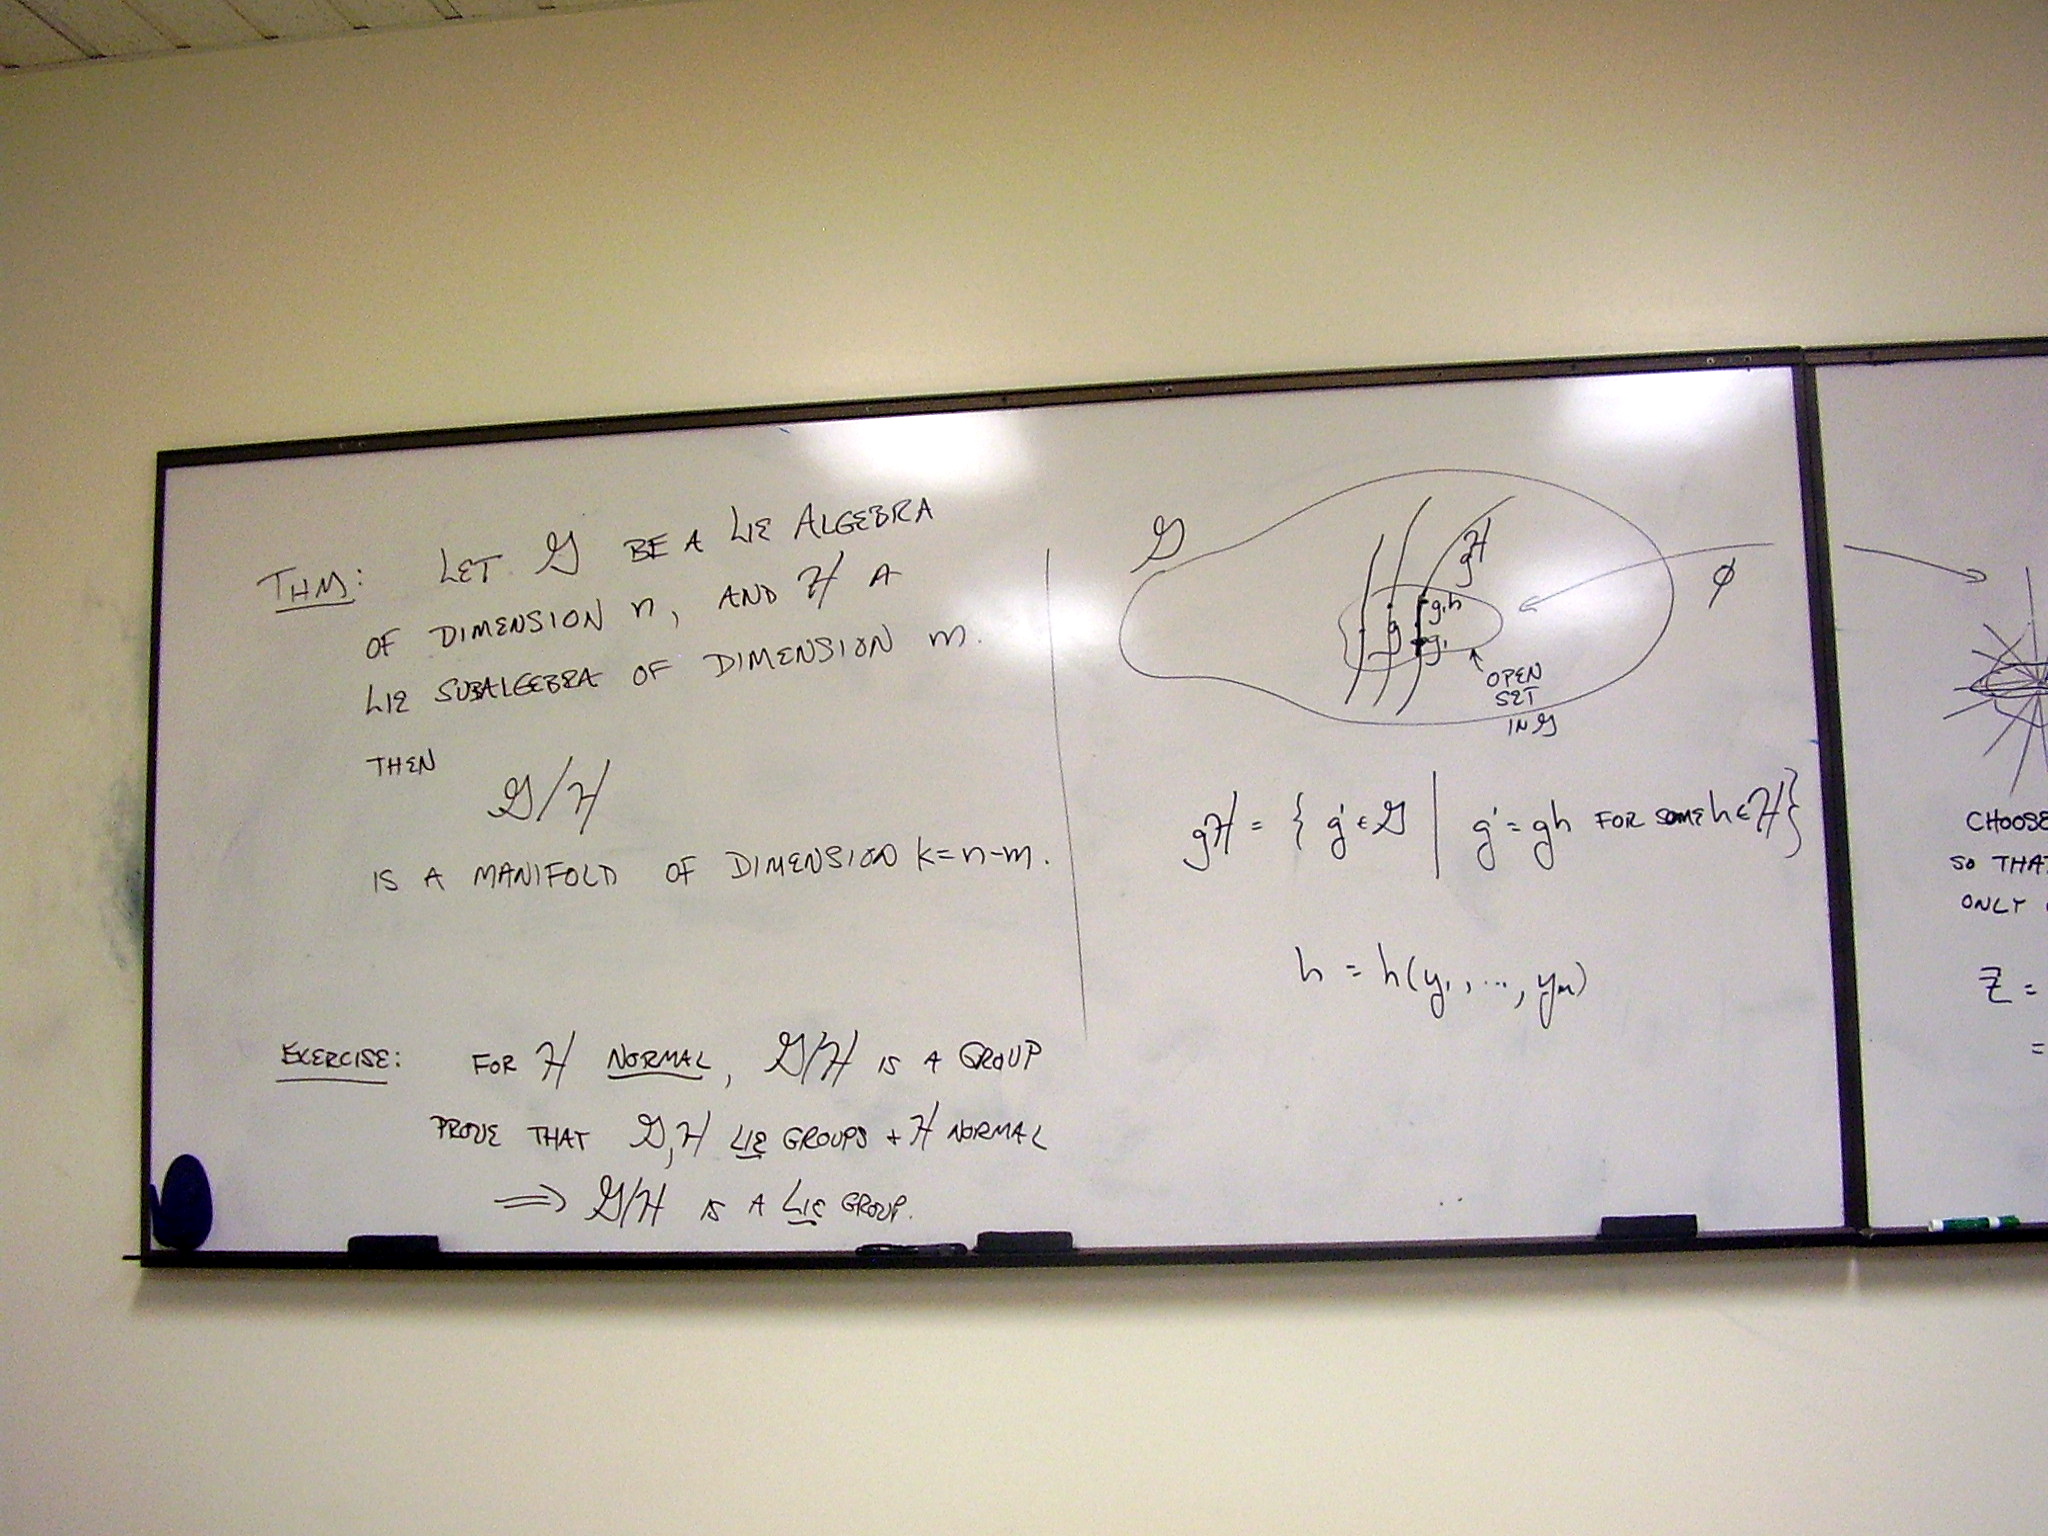 THM: LET 𝒢 BE A LIE ALGEBRA
OF DIMENSION n, AND ℋ A
LIE SUBALGEBRA OF DIMENSION m.
THEN
𝒢/ℋ
IS A MANIFOLD OF DIMENSION k=n-m.
EXERCISE: FOR ℋ NORMAL, 𝒢/ℋ IS A GROUP
PROVE THAT 𝒢,ℋ LIE GROUPS + ℋ NORMAL
⟹ 𝒢/ℋ IS A LIE GROUP.
𝒢
gℋ
g₁h
g
g₁
OPEN
SET
IN 𝒢
ϕ
gℋ = { g' ∈ 𝒢 | g' = gh FOR SOME h ∈ ℋ }
h = h(y₁, ..., yₘ)
CHOOSE
SO THAT
ONLY
Z =
=